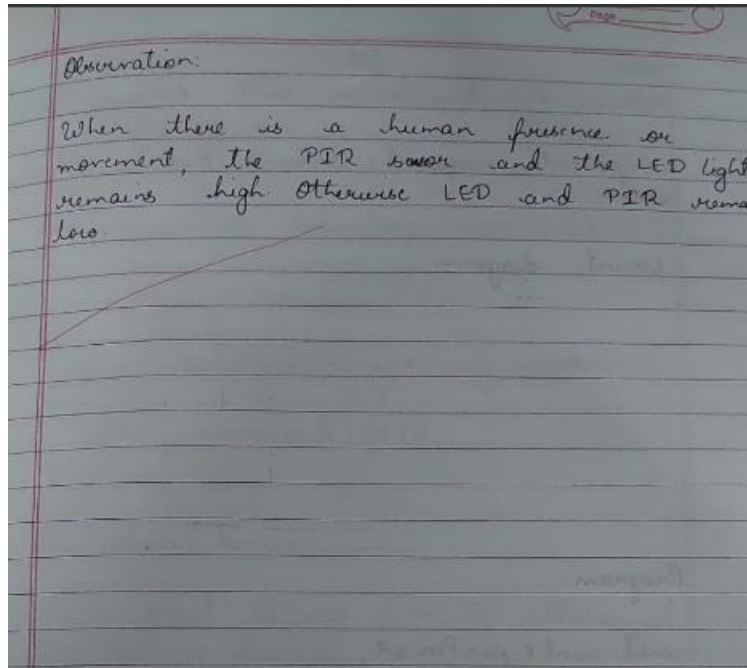 Page
Observation:
When there is a human presence or
movement, the PIR sensor and the LED light
remains high. Otherwise LED and PIR rema
low.